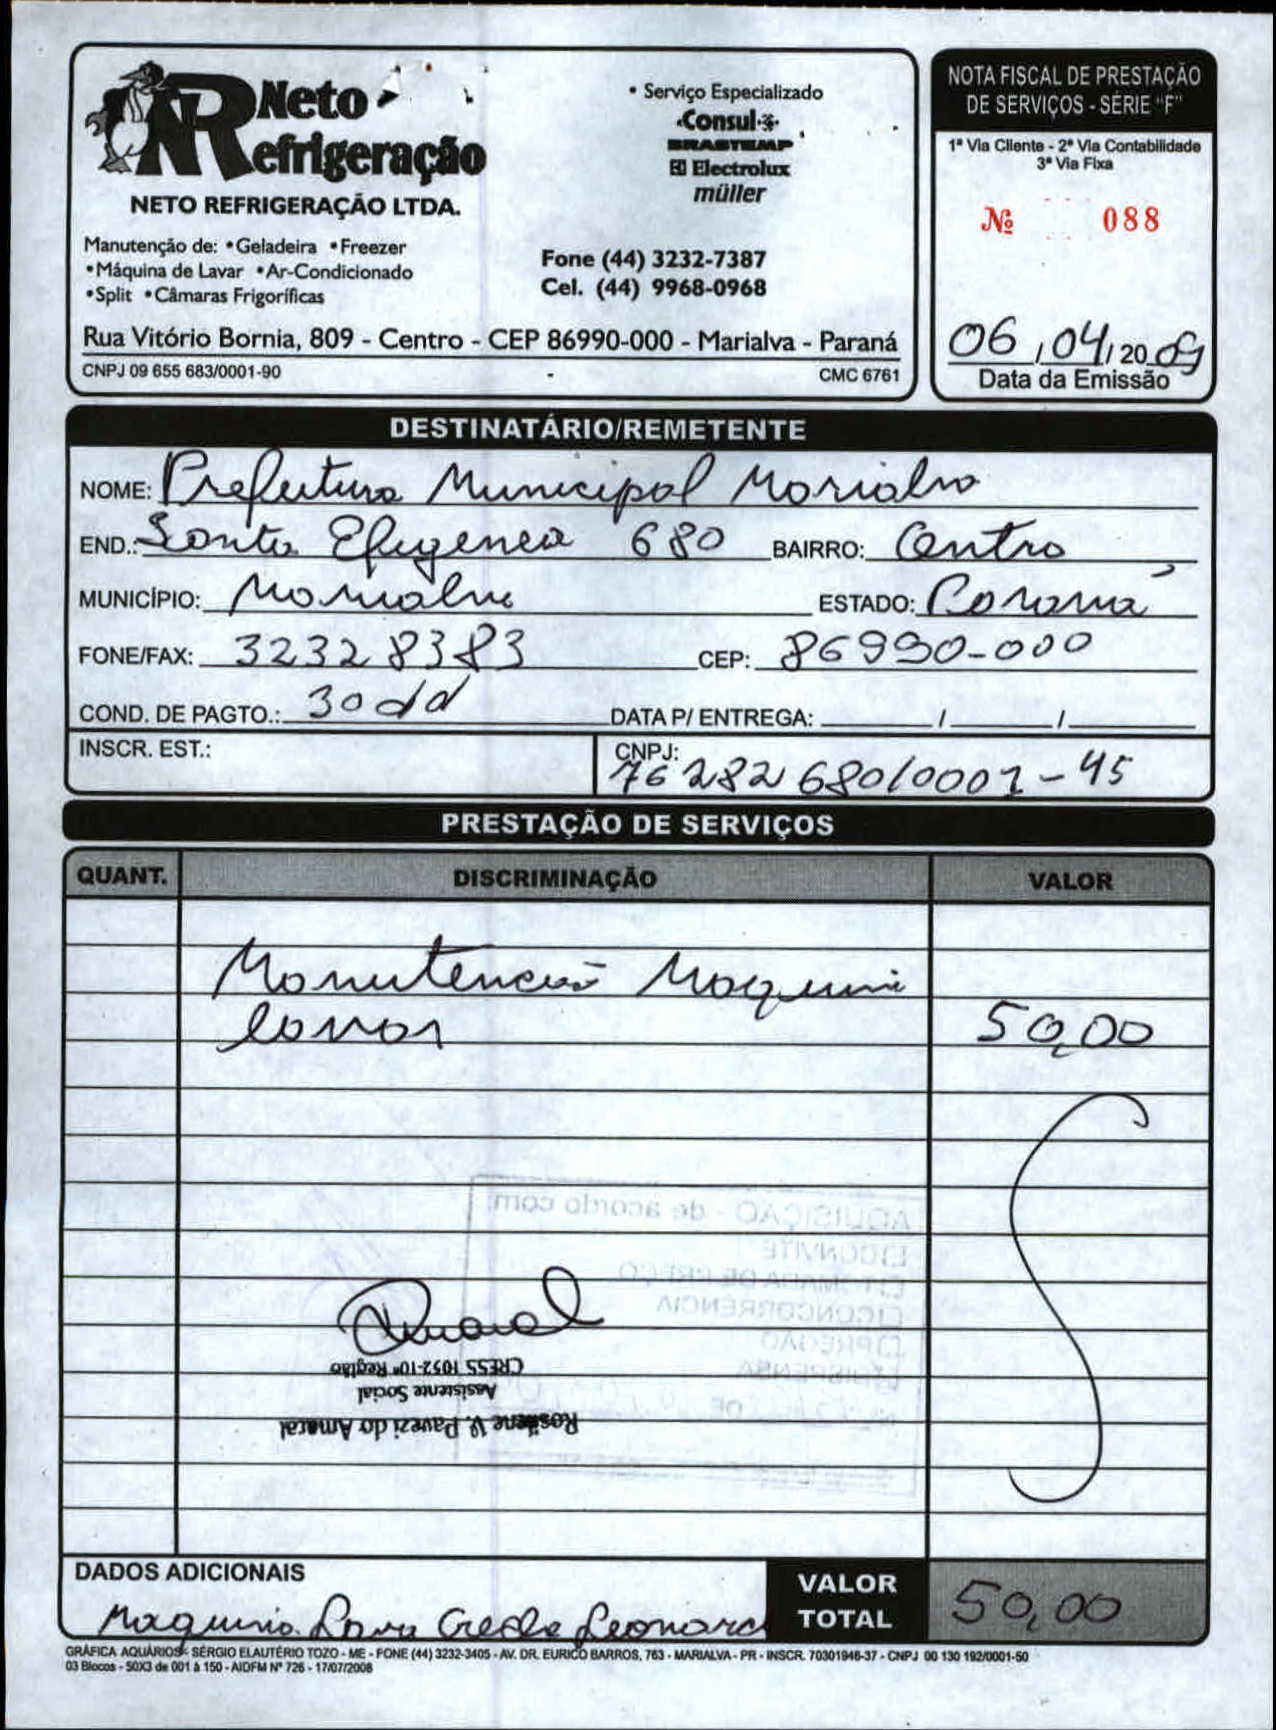 Neto
Refrigeração
NETO REFRIGERAÇÃO LTDA.
Manutenção de: •Geladeira •Freezer
•Máquina de Lavar •Ar-Condicionado
•Split •Câmaras Frigoríficas
• Serviço Especializado
Consul
BRASTEMP
Electrolux
müller
Fone (44) 3232-7387
Cel. (44) 9968-0968
Rua Vitório Bornia, 809 - Centro - CEP 86990-000 - Marialva - Paraná
CNPJ 09 655 683/0001-90 CMC 6761
NOTA FISCAL DE PRESTAÇÃO
DE SERVIÇOS - SÉRIE "F"
1ª Via Cliente - 2ª Via Contabilidade
3ª Via Fixa
Nº 088
06/04/2009
Data da Emissão
DESTINATÁRIO/REMETENTE
NOME: Prefeitura Municipal Marialva
END.: Santa Efigenea 680 BAIRRO: Centro
MUNICÍPIO: Marialva ESTADO: Paraná
FONE/FAX: 32328383 CEP: 86990-000
COND. DE PAGTO.: 30 dd DATA P/ ENTREGA: / /
INSCR. EST.: CNPJ: 76 282 680/0001-45
PRESTAÇÃO DE SERVIÇOS
QUANT. DISCRIMINAÇÃO VALOR
Manutencão Maquina
lavar 50,00
AQUISIÇÃO - de acordo com:
CONVITE
TOMADA DE PREÇO
CONCORRÊNCIA
PREGÃO
DISPENSA
Amaral
CRESS 1052-10ª Região
Assistente Social
Rosilene V. Pavezi do Amaral
DADOS ADICIONAIS
Maquina Lava Creche
VALOR
TOTAL 50,00
GRÁFICA AQUÁRIOS - SÉRGIO ELAUTÉRIO TOZO - ME - FONE (44) 3232-3405 - AV. DR. EURICO BARROS, 763 - MARIALVA - PR - INSCR. 70301946-37 - CNPJ 00 130 192/0001-50
03 Blocos - 50X3 de 001 à 150 - AIDFM Nº 726 - 17/07/2008